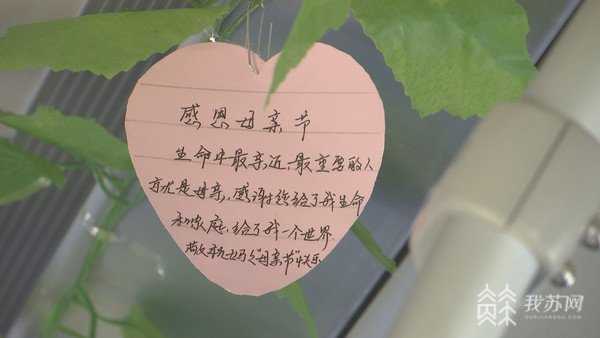 感恩母亲节
生命中最亲近、最重要的人
亦尤是母亲,感谢她给了我生命
和家庭,给了我一个世界.
"母亲节"快乐
我苏网
OURJIANGSU.COM